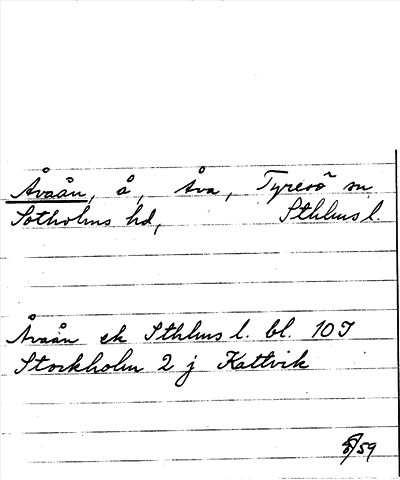 Åvaån, å, Åva, Tyresö sn
Sotholms hd, Sthlms l.
Åvaån ek Sthlms l. bl. 10 I
Stockholm 2 j Kattvik
8/59